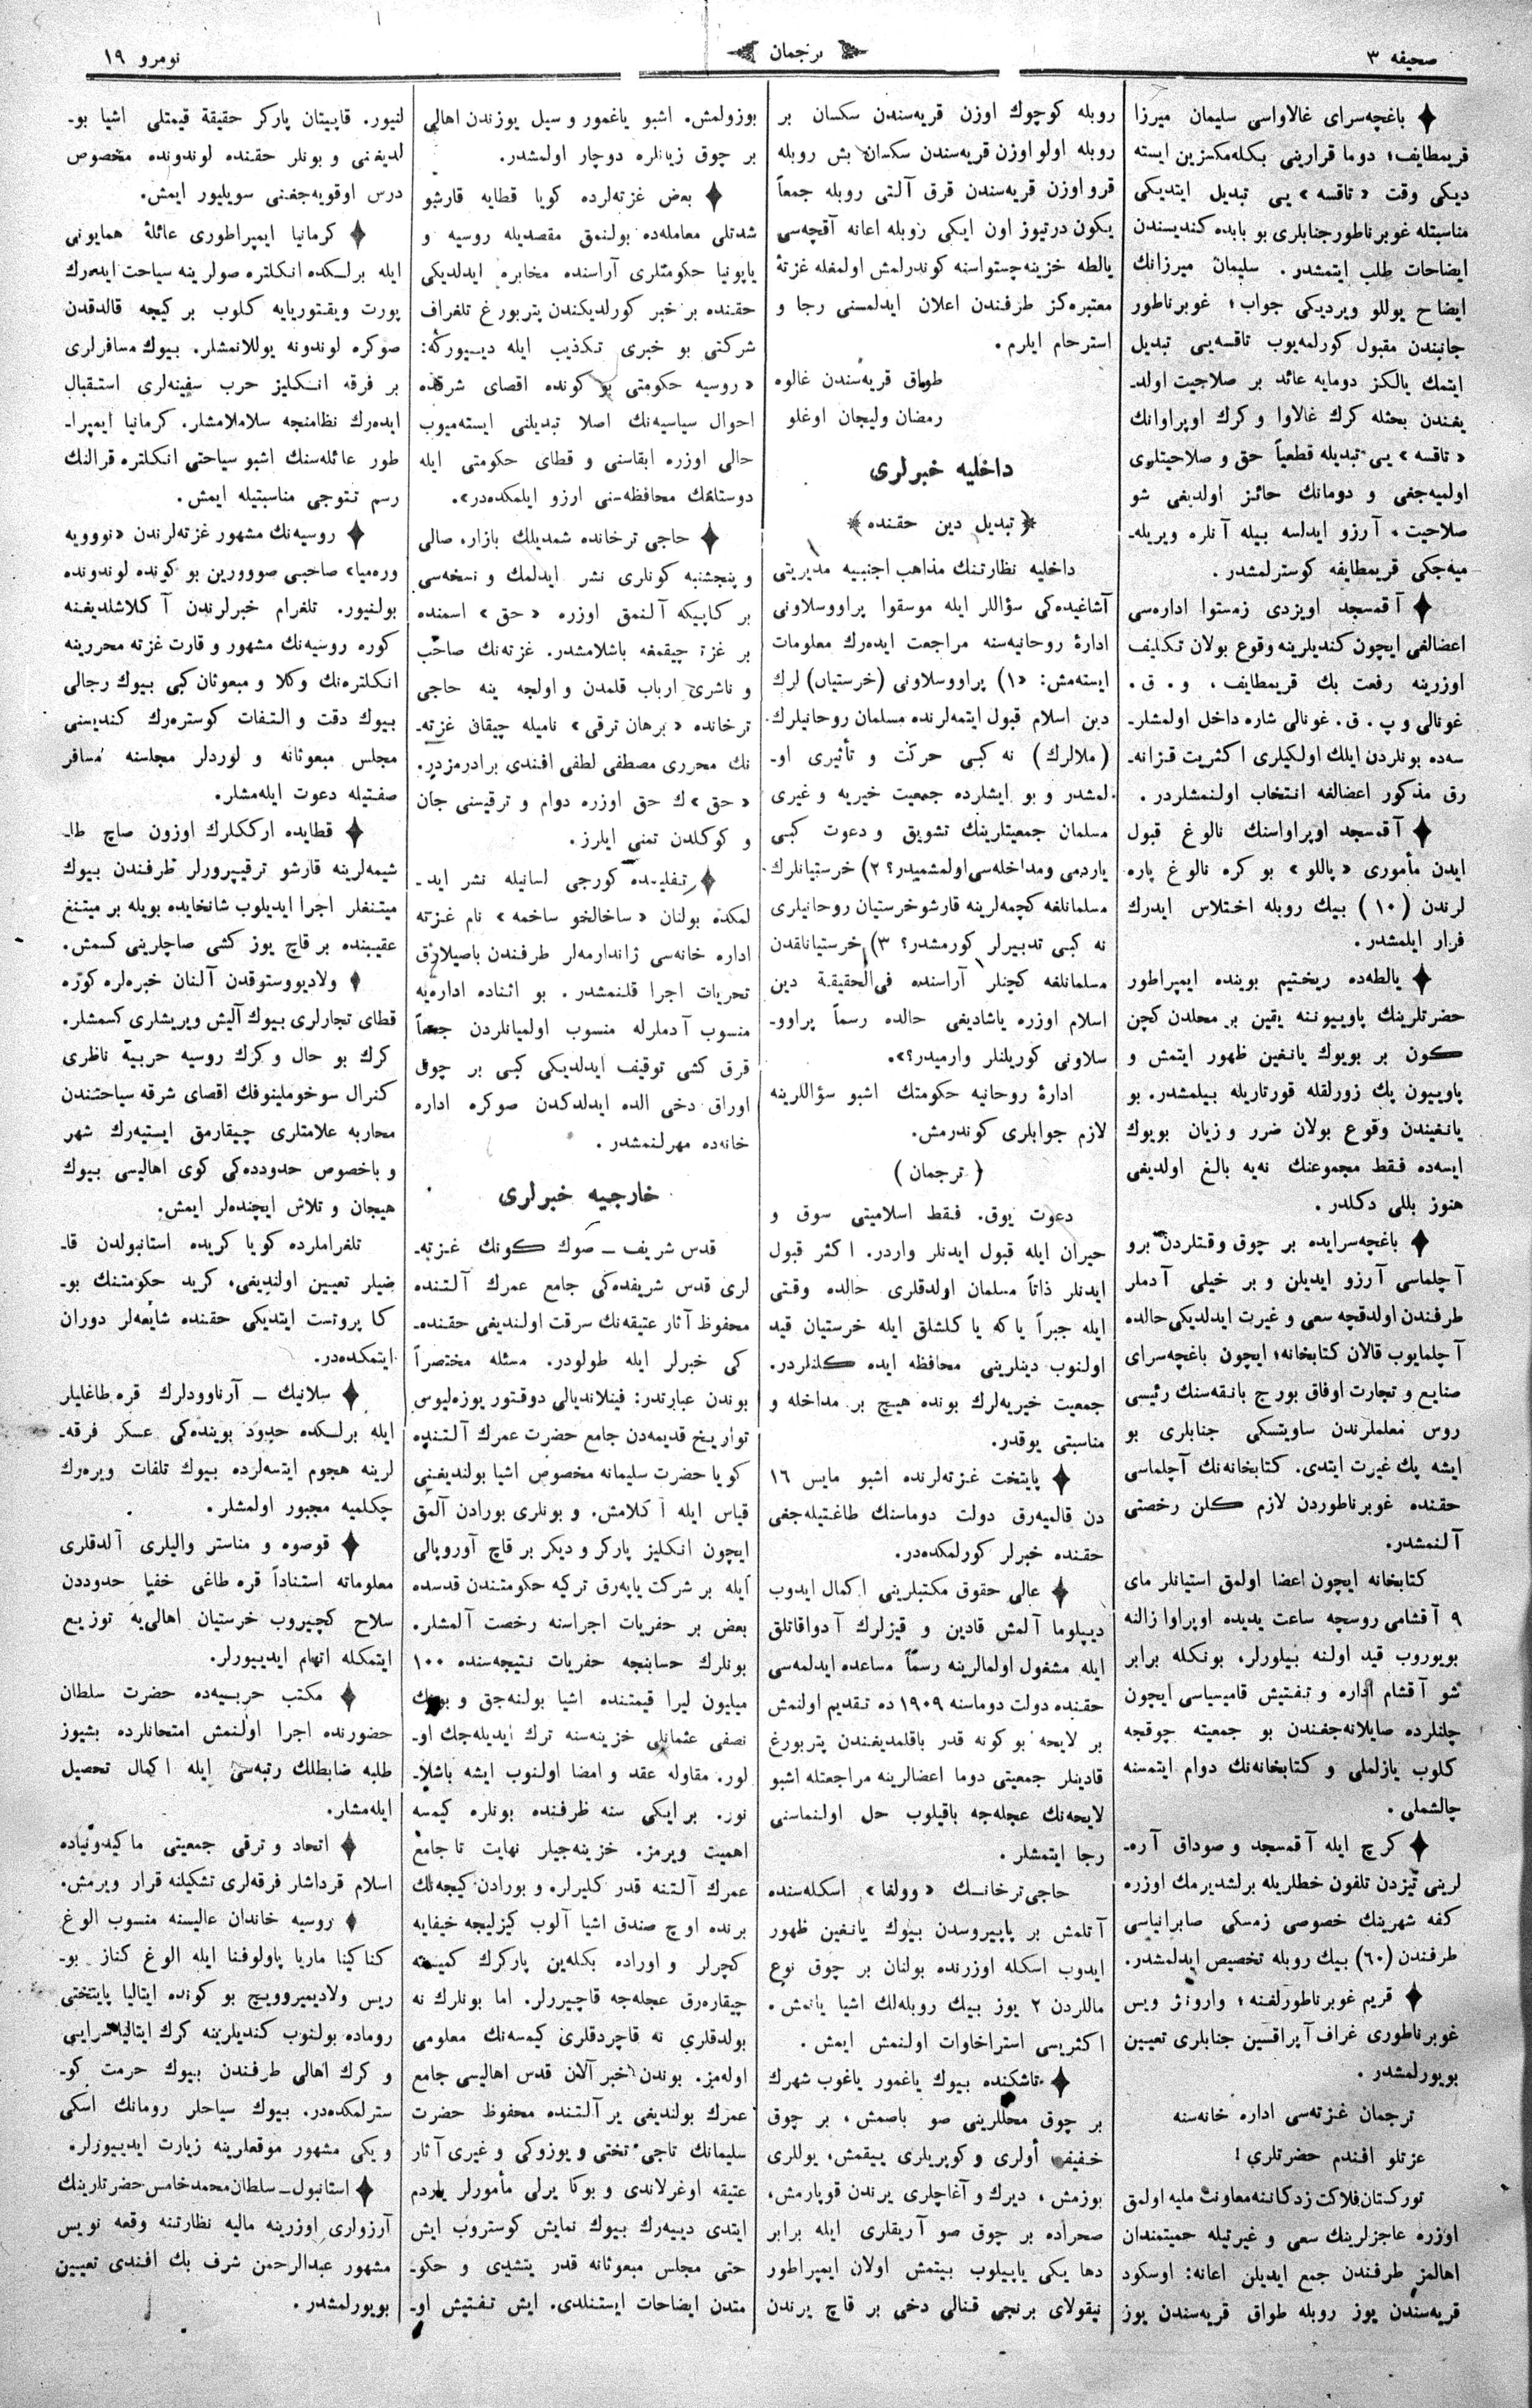 صحیفه ۳
ترجمان
نومرو ۱۹
باغچه‌سرای غالاواسی سلیمان میرزا
قریمطایف؛ دوما قرارینی بکله‌مکسزین ایسته
دیکی وقت « تاقسه » یی تبدیل ایتدیکی
مناسبتله غوبرناطور جنابلری بو بابده کندیسندن
ایضاحات طلب ایتمشدر. سلیمان میرزانك
ایضاح یوللو ویردیکی جواب؛ غوبرناطور
جانبندن مقبول کورلمه‌یوب تاقسه‌یی تبدیل
ایتمك یالکز دومایه عائد بر صلاحیت اولد-
یغندن بحثله کرك غالاوا و کرك اوپراوانك
« تاقسه » یی تبدیله قطعیاً حق و صلاحیتلری
اولمیه‌جغی و دومانك حائز اولدیغی شو
صلاحیت، آرزو ایدلسه بیله آنلره ویریله-
میه‌جکی قریمطایفه کوسترلمشدر.
آقمسجد اویزدی زمستوا اداره‌سی
اعضالغی ایچون کندیلرینه وقوع بولان تکلیف
اوزرینه رفعت بك قریمطایف، و. ق.
غونالی و پ. ق. غونالی شاره داخل اولمشلر-
سه‌ده بونلردن ایلك اولکیلری اکثریت قزانه-
رق مذکور اعضالغه انتخاب اولنمشلردر.
آقمسجد اوپراواسنك نالوغ قبول
ایدن مأموری « پاللو » بو کره نالوغ پاره
لرندن (۱۰) بیك روبله اختلاس ایدرك
فرار ایلمشدر.
یالطه‌ده ریختیم بوینده ایمپراطور
حضرتلرینك پاوییوننه یقین بر محلدن کچن
کون بر بویوك یانغین ظهور ایتمش و
پاویبون پك زورلقله قورتاریله بیلمشدر. بو
یانغیندن وقوع بولان ضرر و زیان بویوك
ایسه‌ده فقط مجموعنك نه‌یه بالغ اولدیغی
هنوز بللی دکلدر.
باغچه‌سرایده بر چوق وقتلردن برو
آچلماسی آرزو ایدیلن و بر خیلی آدملر
طرفندن اولدقچه سعی و غیرت ایدلدیکی حالده
آچلمایوب قالان کتابخانه؛ ایچون باغچه‌سرای
صنایع و تجارت اوفاق بورج بانقه‌سنك رئیسی
روس معلملرندن ساویتسکی جنابلری بو
ایشه پك غیرت ایتدی. کتابخانه‌نك آچلماسی
حقنده غوبرناطوردن لازم کلن رخصتی
آلنمشدر.
کتابخانه ایچون اعضا اولمق استیانلر مای
۹ آقشامی روسچه ساعت یدیده اوپراوا زالنه
بویوروب قید اولنه بیلورلر، بونکله برابر
شو آقشام اداره و تفتیش قامیسیاسی ایچون
چلنلرده صایلانه‌جغندن بو جمعیته چوقجه
کلوب یازلملی و کتابخانه‌نك دوام ایتمسنه
چالشملی.
کرچ ایله آقمسجد و صوداق آره-
لرینی تیزدن تلفون خطلریله برلشدیرمك اوزره
کفه شهرینك خصوصی زمسکی صابرانیاسی
طرفندن (۶۰) بیك روبله تخصیص ایدلمشدر.
قریم غوبرناطورلغنه؛ وارونژ ویس
غوبرناطوری غراف آپراقسین جنابلری تعیین
بویورلمشدر.
ترجمان غزته‌سی اداره خانه‌سنه
عزتلو افندم حضرتلری!
تورکستان فلاکت زدکاننه معاونت ملیه اولمق
اوزره عاجزلرینك سعی و غیرتیله حمیتمندان
اهالمز طرفندن جمع ایدیلن اعانه: اوسکود
قریه‌سندن یوز روبله طواق قریه‌سندن یوز
روبله کوچوك اوزن قریه‌سندن سکسان بر
روبله اولو اوزن قریه‌سندن سکسان بش روبله
قرو اوزن قریه‌سندن قرق آلتی روبله جمعاً
یکون درتیوز اون ایکی روبله اعانه آقچه‌سی
یالطه خزینه‌چستواسنه کوندرلمش اولمغله غزتهٔ
معتبره‌کز طرفندن اعلان ایدلمسنی رجا و
استرحام ایلرم.
طواق قریه‌سندن غالوه
رمضان ولیجان اوغلو
داخلیه خبرلری
تبدیل دین حقنده
داخلیه نظارتنك مذاهب اجنبیه مدیریتی
آشاغیده‌کی سؤاللر ایله موسقوا پراووسلاونی
ادارهٔ روحانیه‌سنه مراجعت ایده‌رك معلومات
ایسته‌مش: «۱) پراووسلاونی (خرستیان) لرك
دین اسلام قبول ایتمه‌لرنده مسلمان روحانیلرك
(ملالرك) نه کبی حرکت و تأثیری او-
لمشدر و بو ایشلرده جمعیت خیریه و غیری
مسلمان جمعیتلرینك تشویق و دعوت کبی
یاردمی ومداخله‌سی اولمشمیدر؟ ۲) خرستیانلرك
مسلمانلغه کچمه‌لرینه قارشو خرستیان روحانیلری
نه کبی تدبیرلر کورمشدر؟ ۳) خرستیانلقدن
مسلمانلغه کچنلر آراسنده فی‌الحقیقة دین
اسلام اوزره یاشادیغی حالده رسماً پراوو-
سلاونی کوریلنلر وارمیدر؟».
ادارهٔ روحانیه حکومتك اشبو سؤاللرینه
لازم جوابلری کوندرمش.
( ترجمان )
دعوت یوق. فقط اسلامیتی سوق و
حیران ایله قبول ایدنلر واردر. اکثر قبول
ایدنلر ذاتاً مسلمان اولدقلری حالده وقتی
ایله جبراً یاکه یاکلشلق ایله خرستیان قید
اولنوب دینلرینی محافظه ایده کلنلردر.
جمعیت خیریه‌لرك بونده هیچ بر مداخله و
مناسبتی یوقدر.
پایتخت غزته‌لرنده اشبو مایس ۱۶
دن قالمیه‌رق دولت دوماسنك طاغتیله‌جغی
حقنده خبرلر کورلمکده‌در.
عالی حقوق مکتبلرینی اکمال ایدوب
دیپلوما آلمش قادین و قیزلرك آدواقاتلق
ایله مشغول اولمالرینه رسماً مساعده ایدلمه‌سی
حقنده دولت دوماسنه ۱۹۰۹ ده تقدیم اولنمش
بر لایحه بو کونه قدر باقلمدیغندن پتربورغ
قادینلر جمعیتی دوما اعضالرینه مراجعتله اشبو
لایحه‌نك عجله‌جه باقیلوب حل اولنماسنی
رجا ایتمشلر.
حاجی‌ترخانك « وولغا » اسکله‌سنده
آتلمش بر پاپیروسدن بیوك یانغین ظهور
ایدوب اسکله اوزرنده بولنان بر چوق نوع
ماللردن ۲ یوز بیك روبله‌لك اشیا یانمش.
اکثریسی استراخاوات اولنمش ایمش.
تاشکنده بیوك یاغمور یاغوب شهرك
بر چوق محللرینی صو باصمش، بر چوق
خفیف أولری و کوپریلری ییقمش، یوللری
بوزمش، دیرك و آغاچلری یرندن قوپارمش،
صحراده بر چوق صو آریقلری ایله برابر
دها یکی یاپیلوب بیتمش اولان ایمپراطور
نیقولای برنجی قنالی دخی بر قاچ یرندن
بوزولمش. اشبو یاغمور و سیل یوزندن اهالی
بر چوق زیانلره دوچار اولمشدر.
بعض غزته‌لرده کویا قطایه قارشو
شدتلی معامله‌ده بولنمق مقصدیله روسیه و
یاپونیا حکومتلری آراسنده مخابره ایدلدیکی
حقنده بر خبر کورلدیکندن پتربورغ تلغراف
شرکتی بو خبری تکذیب ایله دیيورکه:
« روسیه حکومتی بو کونده اقصای شرقده
احوال سیاسیه‌نك اصلا تبدیلنی ایسته‌میوب
حالی اوزره ابقاسنی و قطای حکومتی ایله
دوستلغك محافظه‌سنی ارزو ایلمکده‌در».
حاجی ترخانده شمدیلك بازار، صالی
و پنجشنبه کونلری نشر ایدلمك و نسخه‌سی
بر کاپیکه آلنمق اوزره « حق » اسمنده
بر غزته چیقمغه باشلامشدر. غزته‌نك صاحب
و ناشری ارباب قلمدن و اولجه ینه حاجی
ترخانده « برهان ترقی » نامیله چیقان غزته-
نك محرری مصطفی لطفی افندی برادرمزدر.
« حق » ك حق اوزره دوام و ترقیسنی جان
و کوکلدن تمنی ایلرز.
تفلیسده کورجی لسانیله نشر اید-
لمکده بولنان « ساخالخو ساخمه » نام غزته
اداره خانه‌سی ژاندارمه‌لر طرفندن باصیلارق
تحریات اجرا قلنمشدر. بو اثناده اداره‌یه
منسوب آدملرله منسوب اولمیانلردن جمعاً
قرق کشی توقیف ایدلدیکی کبی بر چوق
اوراق دخی الده ایدلدکدن صوکره اداره
خانه‌ده مهرلنمشدر.
خارجیه خبرلری
قدس شریف – صوك کونك غزته-
لری قدس شریفده‌کی جامع عمرك آلتنده
محفوظ آثار عتیقه‌نك سرقت اولندیغی حقنده-
کی خبرلر ایله طولودر. مسئله مختصراً
بوندن عبارتدر: فینلاندیالی دوقتور یوزه‌لیوس
تواریخ قدیمه‌دن جامع حضرت عمرك آلتنده
کویا حضرت سلیمانه مخصوص اشیا بولندیغنی
قیاس ایله آکلامش. و بونلری بورادن آلمق
ایچون انکلیز پارکر و دیکر بر قاچ آوروپالی
ایله بر شرکت یاپه‌رق ترکیه حکومتندن قدسده
بعض بر حفریات اجراسنه رخصت آلمشلر.
بونلرك حسابنجه حفریات نتیجه‌سنده ۱۰۰
میلیون لیرا قیمتنده اشیا بولنه‌جق و بونك
نصفی عثمانلی خزینه‌سنه ترك ایدیله‌جك او-
لور. مقاوله عقد و امضا اولنوب ایشه باشلا-
نور. بر ایکی سنه ظرفنده بونلره کیمسه
اهمیت ویرمز. خزینه‌جیلر نهایت تا جامع
عمرك آلتنه قدر کلیرلر. و بورادن کیجه‌نك
برنده اوچ صندق اشیا آلوب کیزلیجه خیفایه
کچرلر و اوراده بکله‌ین پارکرك کمیسنه
چیقاره‌رق عجله‌جه قاچیررلر. اما بونلرك نه
بولدقلری نه قاچردقلری کیمسه‌نك معلومی
اوله‌مز. بوندن خبر آلان قدس اهالیسی جامع
عمرك بولندیغی یر آلتنده محفوظ حضرت
سلیمانك تاجی تختی و یوزوکی و غیری آثار
عتیقه اوغرلاندی و بوکا یرلی مأمورلر یاردم
ایتدی دییه‌رك بیوك نمایش کوستروب ایش
حتی مجلس مبعوثانه قدر یتشدی و حکو-
متدن ایضاحات ایستنلدی. ایش تفتیش او-
لنیور. قاپیتان پارکر حقیقة قیمتلی اشیا بو-
لدیغنی و بونلر حقنده لوندونده مخصوص
درس اوقویه‌جغنی سویلیور ایمش.
کرمانیا ایمپراطوری عائلهٔ همایونی
ایله برلکده انکلتره صولرینه سیاحت ایده‌رك
پورت ویقتوریایه کلوب بر کیجه قالدقدن
صوکره لوندونه یوللانمشلر. بیوك مسافرلری
بر فرقه انکلیز حرب سفینه‌لری استقبال
ایده‌رك نظامنجه سلاملامشلر. کرمانیا ایمپرا-
طور عائله‌سنك اشبو سیاحتی انکلتره قرالنك
رسم تتوجی مناسبتیله ایمش.
روسیه‌نك مشهور غزته‌لرندن «نوویه
وره‌میا» صاحبی صووورین بو کونده لوندونده
بولنیور. تلغرام خبرلرندن آکلاشلدیغنه
کوره روسیه‌نك مشهور و قارت غزته محررینه
انکلتره‌نك وکلا و مبعوثان کبی بیوك رجالی
بیوك دقت و التفات کوستره‌رك کندیسنی
مجلس مبعوثانه و لوردلر مجلسنه مسافر
صفتیله دعوت ایله‌مشلر.
قطایده ارککلرك اوزون صاچ طا-
شیمه‌لرینه قارشو ترقیپرورلر طرفندن بیوك
میتنغلر اجرا ایدیلوب شانخایده بویله بر میتنغ
عقیبنده بر قاچ یوز کشی صاچلرینی کسمش.
ولادیووستوقدن آلنان خبره‌لره کوره
قطای تجارلری بیوك آلیش ویریشلری کسمشلر.
کرك بو حال و کرك روسیه حربیه ناظری
کنرال سوخوملینوفك اقصای شرقه سیاحتندن
محاربه علامتلری چیقارمق ایستیه‌رك شهر
و باخصوص حدودده‌کی کوی اهالیسی بیوك
هیجان و تلاش ایچنده‌لر ایمش.
تلغراملرده کویا کریده استانبولدن قا-
ضیلر تعیین اولندیغی، کرید حکومتنك بو-
کا پروتست ایتدیکی حقنده شایعه‌لر دوران
ایتمکده‌در.
سلانیك – آرناوودلرك قره طاغلیلر
ایله برلکده حدود بوینده‌کی عسکر فرقه-
لرینه هجوم ایتسه‌لرده بیوك تلفات ویره‌رك
چکلمیه مجبور اولمشلر.
قوصوه و مناستر والیلری آلدقلری
معلوماته استناداً قره طاغی خفیا حدوددن
سلاح کچیروب خرستیان اهالی‌یه توزیع
ایتمکله اتهام ایدییورلر.
مکتب حربیه‌ده حضرت سلطان
حضورنده اجرا اولنمش امتحانلرده بشیوز
طلبه ضابطلك رتبه‌سی ایله اکمال تحصیل
ایله‌مشلر.
اتحاد و ترقی جمعیتی ماکیدونیاده
اسلام قرداشلر فرقه‌لری تشکیلنه قرار ویرمش.
روسیه خاندان عالیسنه منسوب الوغ
کناکینا ماریا پاولوفنا ایله الوغ کناز بو-
ریس ولادیمیروویچ بو کونده ایتالیا پایتختی
روماده بولنوب کندیلرینه کرك ایتالیا سرایی
و کرك اهالی طرفندن بیوك حرمت کو-
سترلمکده‌در. بیوك سیاحلر رومانك اسکی
و یکی مشهور موقعلرینه زیارت ایدییورلر.
استانبول – سلطان محمد خامس حضرتلرینك
آرزولری اوزرینه مالیه نظارتنه وقعه نویس
مشهور عبدالرحمن شرف بك افندی تعیین
بویورلمشدر.